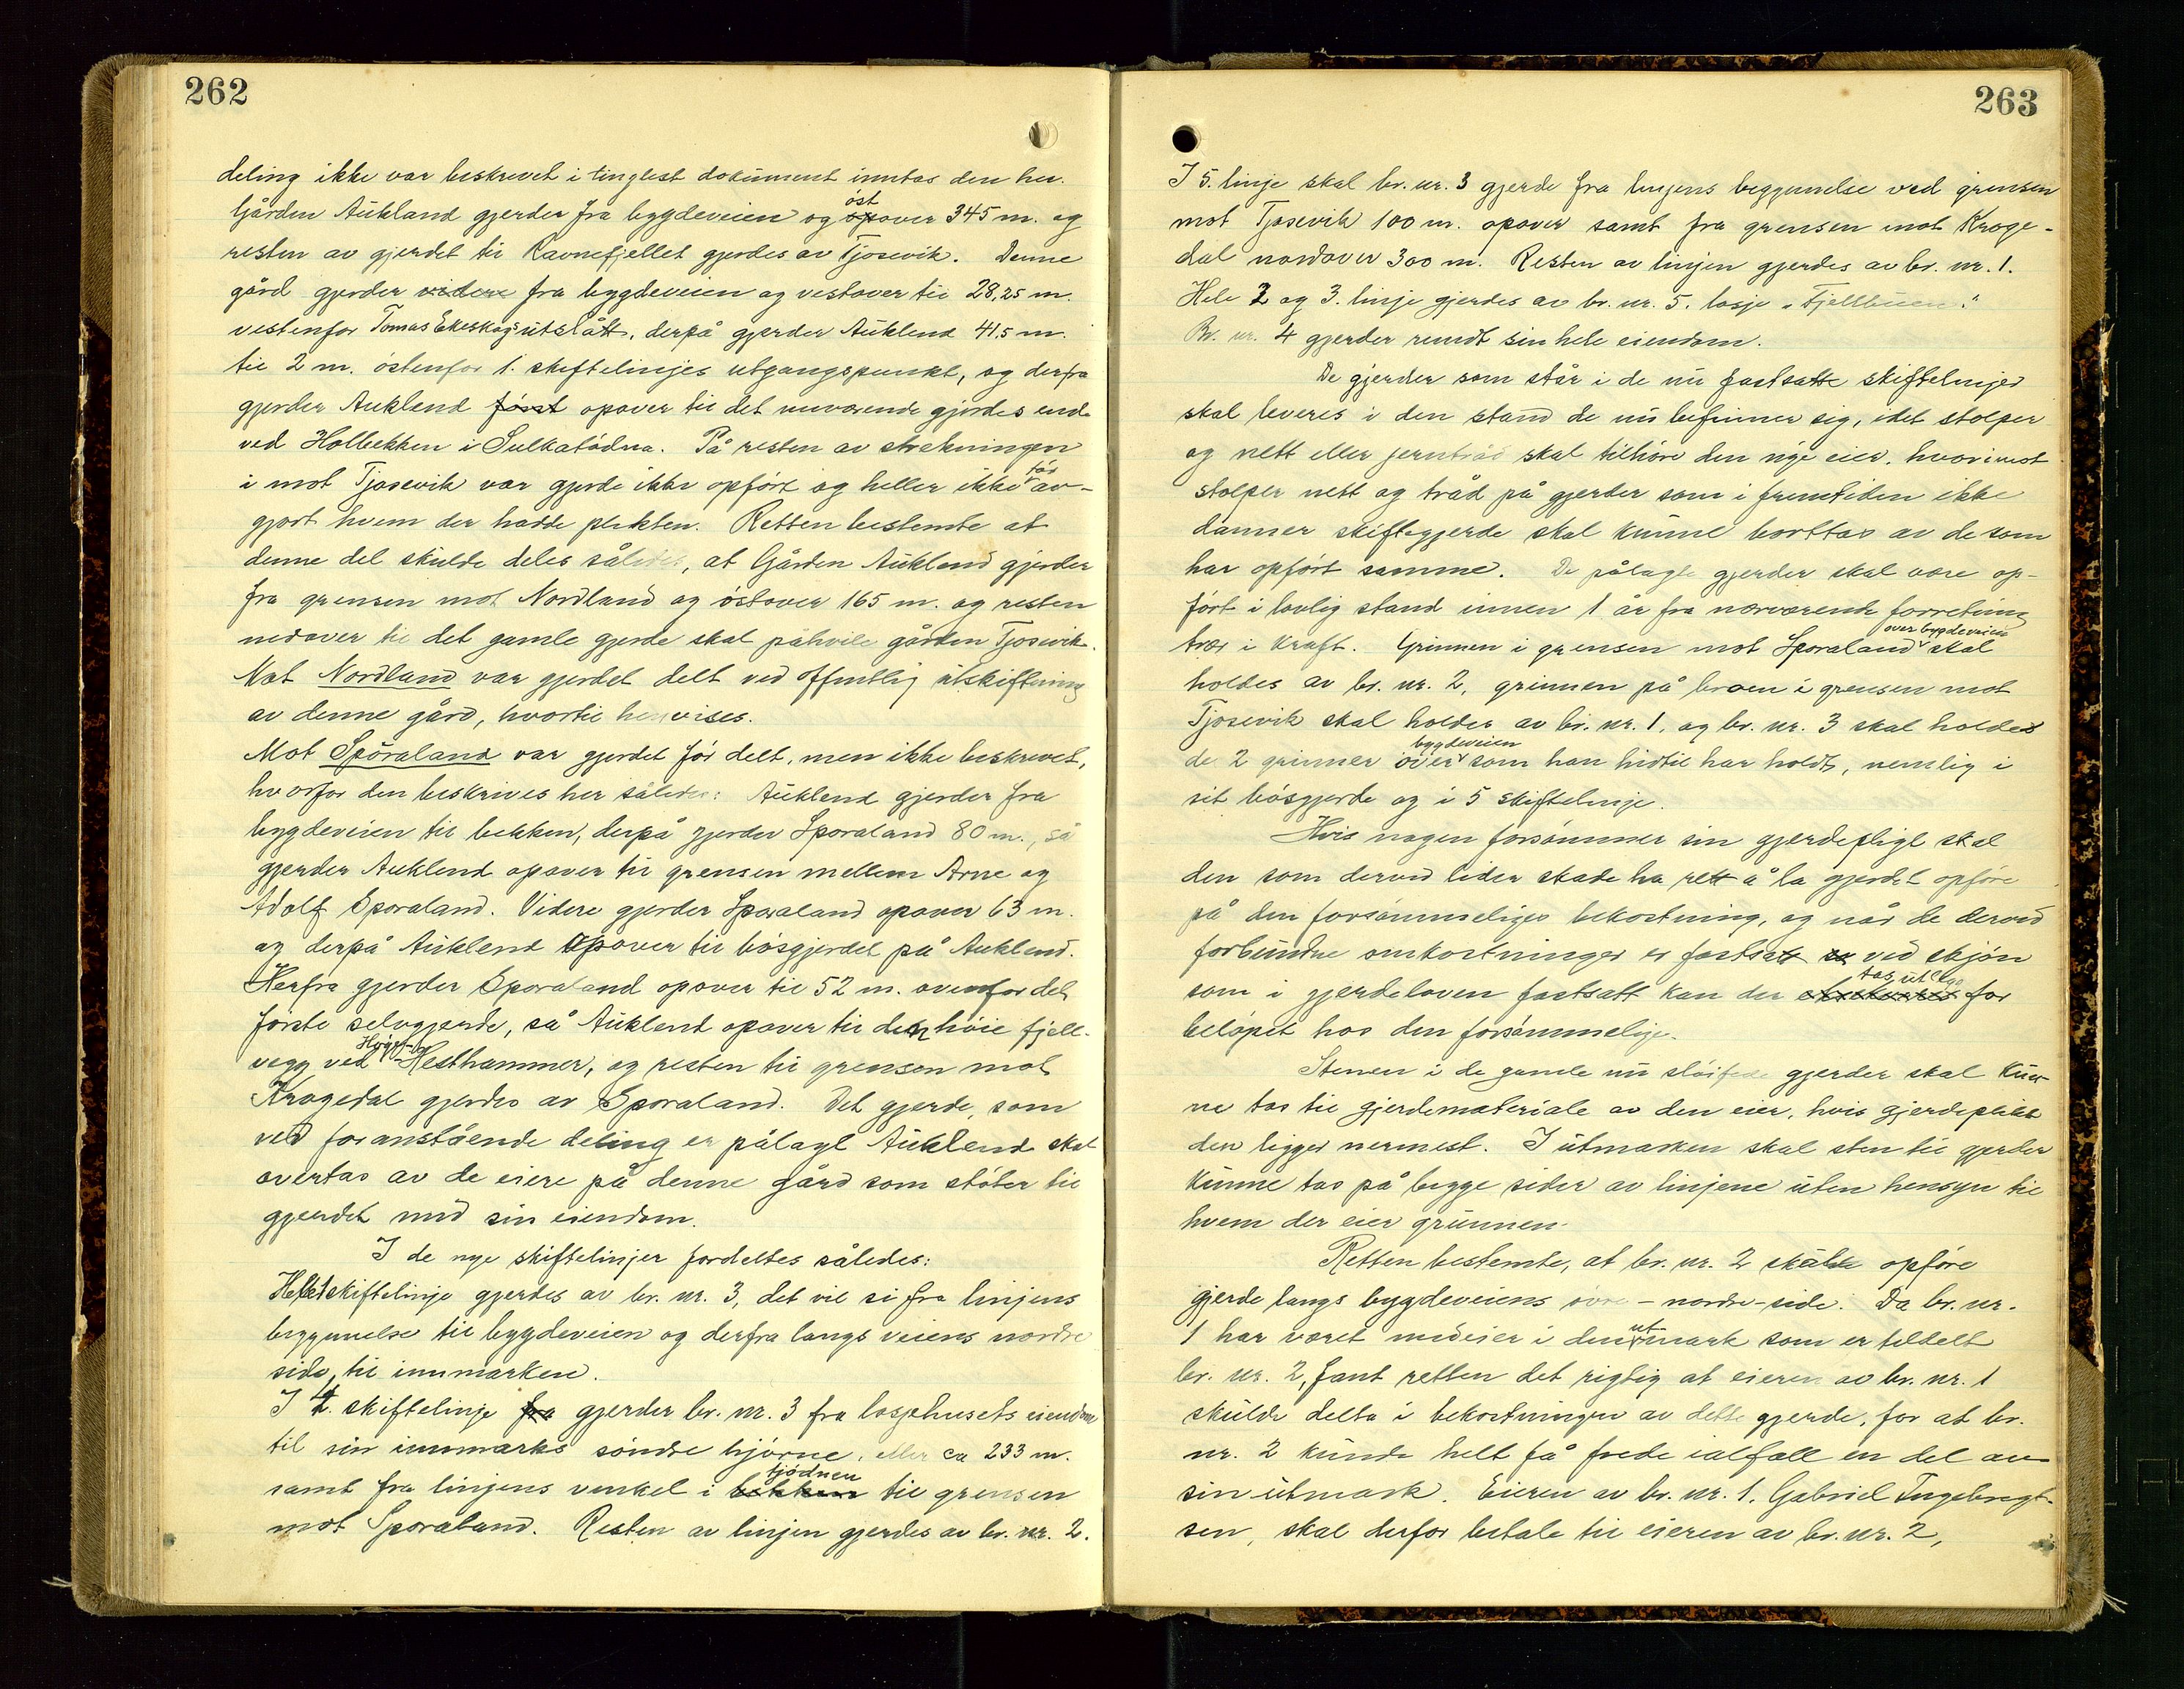 262
deling ikke var beskrevet i tinglest dokument inntas den her.
Gården Aukland gjerder fra bygdeveien og østover 345 m. og
resten av gjerdet til Ravnefjellet gjerdes av Tjosevik. Denne
gård gjerder videre fra bygdeveien og vestover til 28,25 m.
vestenfor Tomas Ekeskogs utslått, derpå gjerder Auklend 41,5 m.
til 2 m. østenfor 1. skiftelinjes utgangspunkt, og derfra
gjerder Aukland først opover til det nuværende gjerdes ende
ved Holbekken i Sulkatødna. På resten av strekningen
i mot Tjosevik var gjerde ikke opført og heller ikke før av-
gjort hvem der hadde plikten. Retten bestemte at
denne del skulde deles således, at Gården Aukland gjerder
fra grensen mot Nordland og østover 165 m. og resten
nedover til det gamle gjerde skal påhvile gården Tjosevik.
Mot Nordland var gjerdet delt ved offentlig utskiftning
av denne gård, hvortil henvises.
Mot Sporaland var gjerdet før delt, men ikke beskrevet,
hvorfor den beskrives her således: Auklend gjerder fra
bygdeveien til bekken, derpå gjerder Sporaland 80 m., så
gjerder Auklend opover til grensen mellem Arne og
Adolf Sporaland. Videre gjerder Sporaland opover 63 m.
og derpå Auklend opover til bøsgjerdet på Auklend.
Herfra gjerder Sporaland opover til 52 m. ovenfor det
første selvgjerde, så Auklend opover til den høie fjell-
vegg ved Høge-Hesthammer, og resten til grensen mot
Krogedal gjerdes av Sporaland. Det gjerde, som
ved foranstående deling er pålagt Auklend skal
overtas av de eiere på denne gård som støter til
gjerdet med sin eiendom.
I de nye skiftelinjer fordeltes således:
Hele 1 skiftelinje gjerdes av br. nr. 3, det vil si fra linjens
begynnelse til bygdeveien og derfra langs veiens nordre
side, til innmarken.
I 4. skiftelinje fra gjerder br. nr. 3 fra losjehusets eiendom
til sin innmarks søndre hjørne, eller ca 233 m.
samt fra linjens vinkel i bekken tjødnen til grensen
mot Sporaland. Resten av linjen gjerdes av br. nr. 2.
263
I 5. linje skal br. nr. 3 gjerde fra linjens begynnelse ved grensen
mot Tjosevik 100 m. opover samt fra grensen mot Kroge-
dal nordover 300 m. Resten av linjen gjerdes av br. nr. 1.
Hele 2 og 3. linje gjerdes av br. nr. 5. losje „Fjellbuen."
Br. nr. 4 gjerder rundt sin hele eiendom.
De gjerder som står i de nu fastsatte skiftelinjer
skal leveres i den stand de nu befinner sig, idet stolper
og nett eller jerntråd skal tilhøre den nye eier, hvorimot
stolper nett og tråd på gjerder som i fremtiden ikke
danner skiftegjerde skal kunne borttas av de som
har opført samme. De pålagte gjerder skal være op-
ført i lovlig stand innen 1 år fra nærværende forretning
trær i kraft. Grinnen i grensen mot Sporaland over bygdeveien skal
holdes av br. nr. 2, grinnen på broen i grensen mot
Tjosevik skal holdes av br. nr. 1. og br. nr. 3 skal holde
de 2 grinner over bygdeveien som han hidtil har holdt, nemlig i
sit bøsgjerde og i 5 skiftelinje.
Hvis nogen forsømmer sin gjerdepligt skal
den som derved lider skade ha rett å la gjerdet opføre
på den forsømmeliges bekostning, og når de derved
forbundne omkostninger er fastsatt ved skjøn
som i gjerdeloven fastsatt kan der tas utlegg for
beløpet hos den forsømmelige.
Stenen i de gamle nu sløifede gjerder skal kun-
ne tas til gjerdemateriale av den eier, hvis gjerdeplikt
den ligger nermest. I utmarken skal sten til gjerder
kunne tas på begge sider av linjene uten hensyn til
hvem der eier grunnen.
Retten bestemte, at br. nr. 2 skulde opføre
gjerde langs bygdeveiens øvre - nordre-side. Da br. nr.
1 har været medeier i den utmark som er tildelt
br. nr. 2, fant retten det rigtig at eieren av br. nr. 1
skulde delta i bekostningen av dette gjerde, for at br.
nr. 2 kunde helt få frede ialfall en del av
sin utmark. Eieren av br. nr. 1. Gabriel Ingebregt-
sen, skal derfor betale til eieren av br. nr. 2,